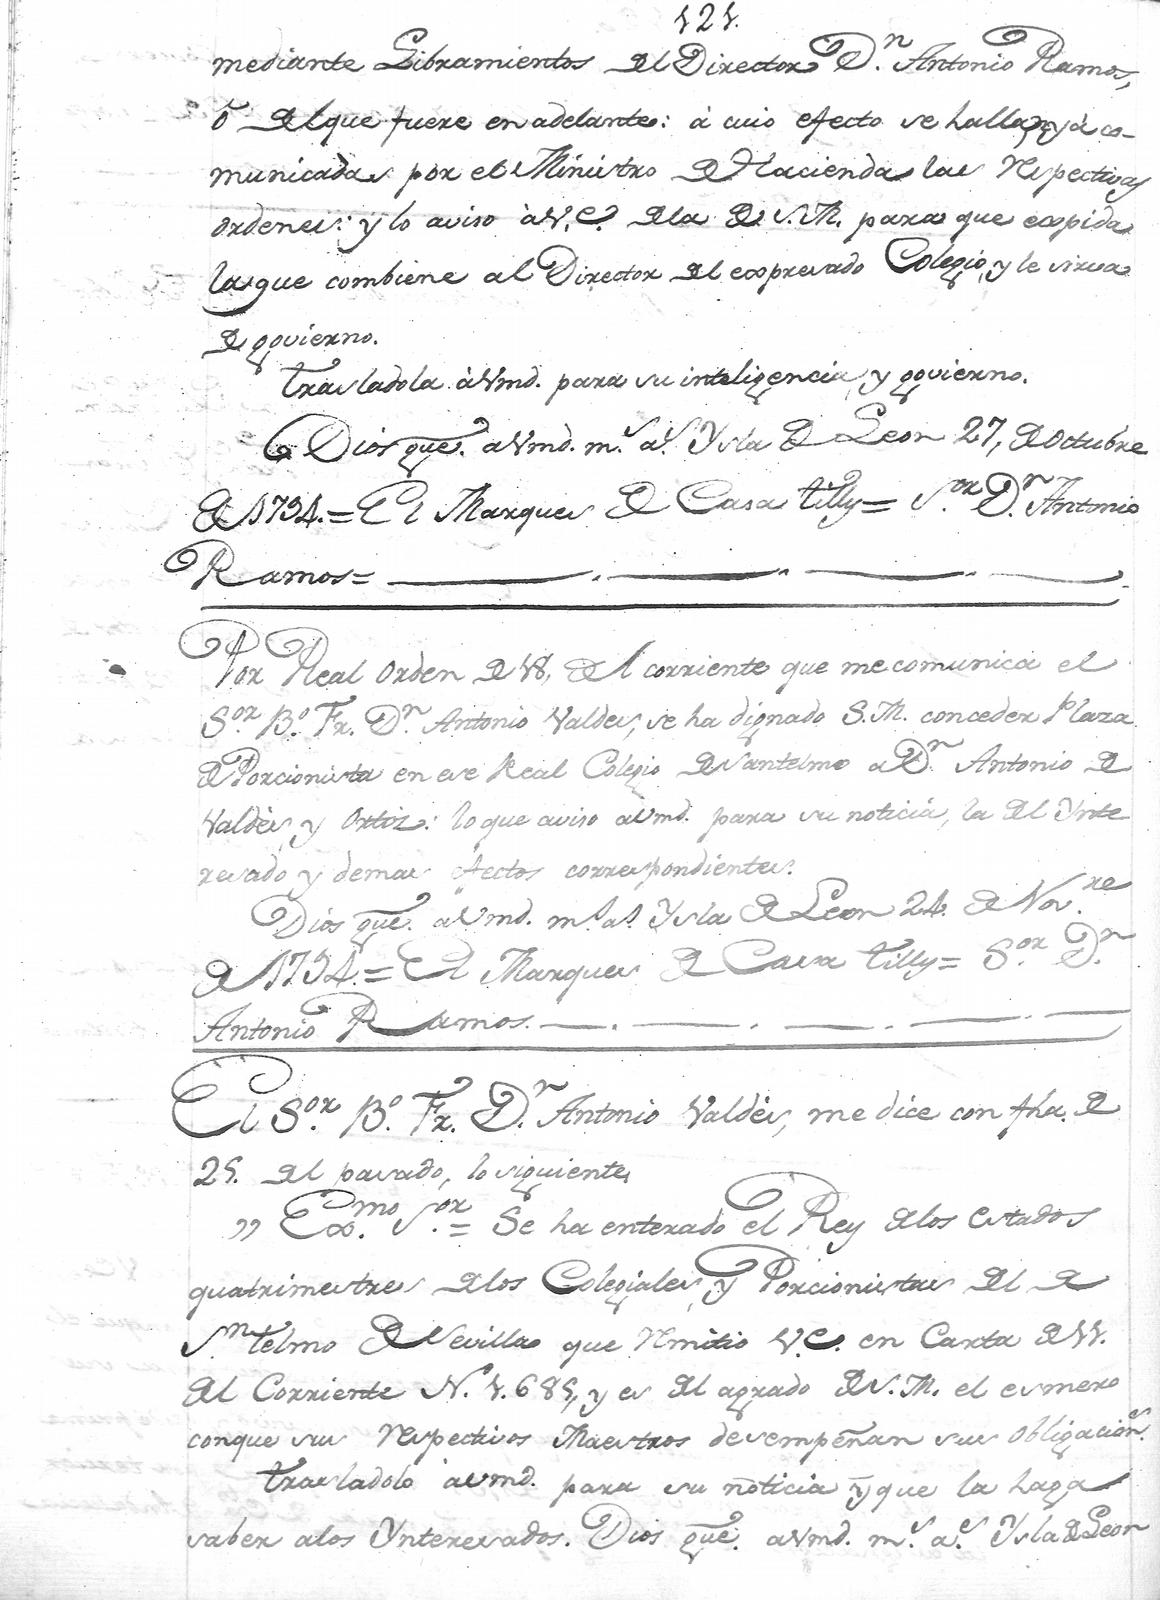 121.
mediante Libramientos del Director D.n Antonio Ramos,
ó del que fuere en adelante: á cuio efecto se hallan yá co-
municadas por el Ministro de Hacienda las respectivas
ordenes: y lo aviso à V.E. de la de S.M. para que expida
la que combiene al Director del expresado Colegio, y le sirva
de govierno.
Trasladola à Vmd. para su inteligencia, y govierno.
Dios gue. a Vmd. m.s a.s Ysla de Leon 27, de Octubre
de 1794.= El Marques de Casa Tilly= S.or D.n Antonio
Ramos=
Por Real Orden de 18, del corriente que me comunica el
S.or B.o Fr. D.n Antonio Valdes, se ha dignado S.M. conceder Plaza
de Porcionista en ese Real Colegio de Santelmo a D.n Antonio de
Valdès, y Ortiz: lo que aviso a Vmd. para su noticia, la del Ynte
resado y demas efectos correspondientes.
Dios gue. a Vmd. m.s a.s Ysla de Leon 24. de Nov.re
de 1794.= El Marques de Casa Tilly= S.or D.n
Antonio Ramos.
El S.or B.o Fr. D.n Antonio Valdès, me dice con fha. de
25. del pasado, lo siguiente
" Exmo. S.or = Se ha enterado el Rey de los estados
quatrimestres de los Colegiales, y Porcionistas del de
S.n Telmo de Sevilla que remitio V.E. en Carta de 11.
del Corriente N. 1.685, y es del agrado de S.M. el esmero
conque sus respectivos Maestros desempeñan sus obligacion.s
Trasladolo à Vmd. para su noticia y que la haga
saber a los Ynteresados. Dios gue. a Vmd. m.s a.s Ysla de Leon